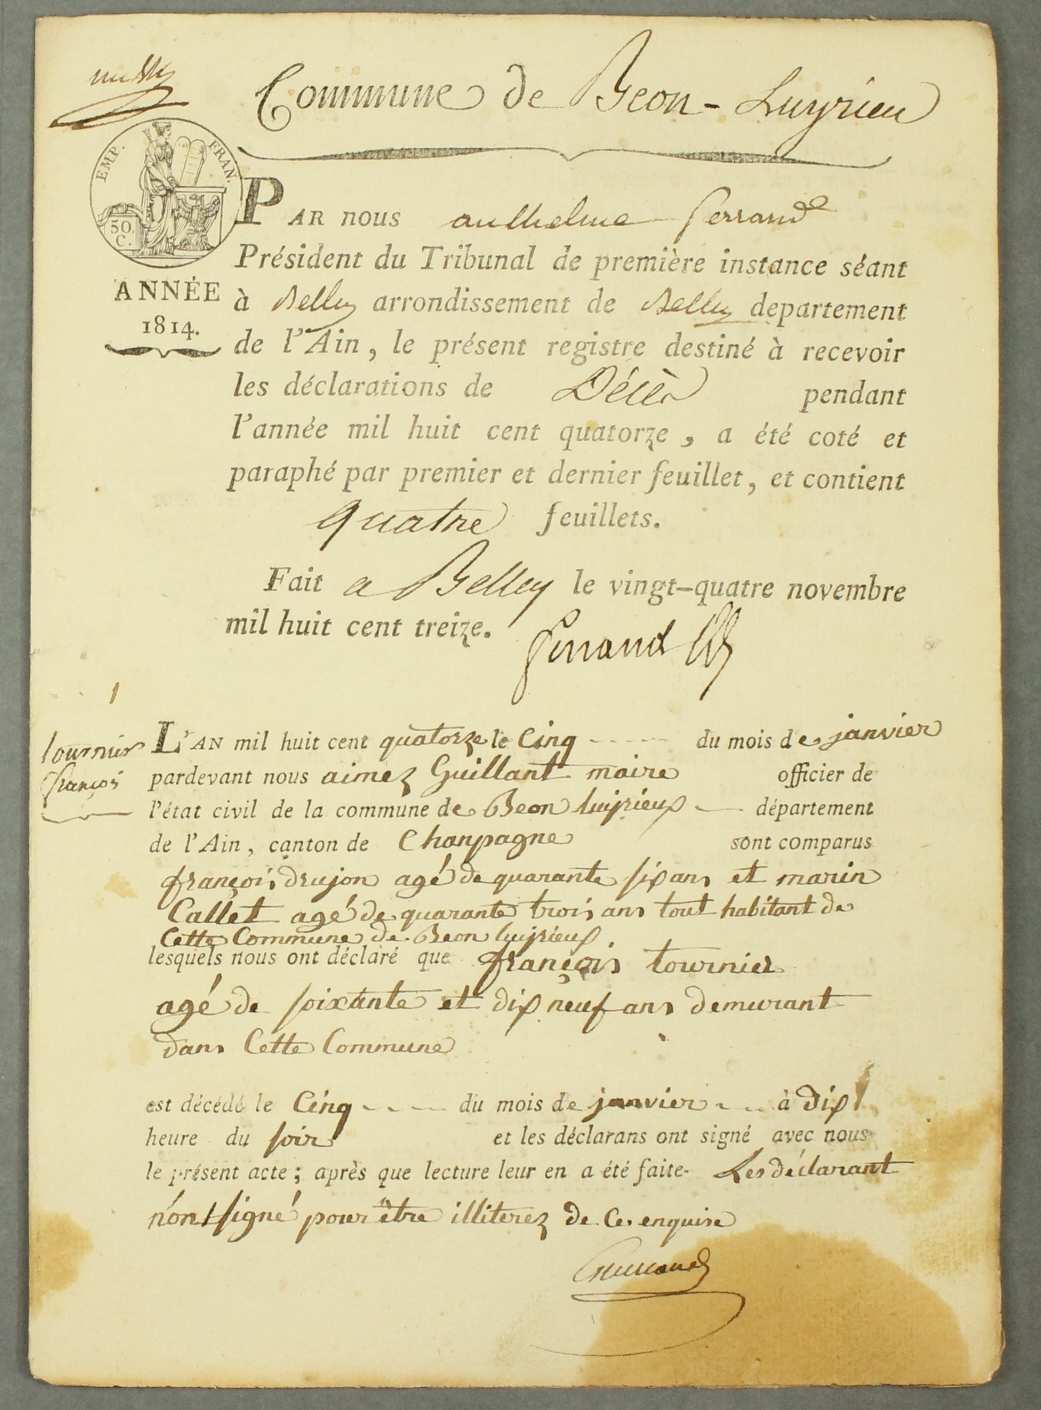 Commune de Beon - Luyrieu
EMP. FRAN.
50
C.
ANNÉE
1814.
PAR nous anthelme ferrand
Président du Tribunal de première instance séant
à Belley arrondissement de Belley departement
de l'Ain, le présent registre destiné à recevoir
les déclarations de Décès pendant
l'année mil huit cent quatorze, a été coté et
paraphé par premier et dernier feuillet, et contient
quatre feuillets.
Fait a Belley le vingt-quatre novembre
mil huit cent treize.
ferrand
1
tournier
françois
L'AN mil huit cent quatorze le Cinq du mois de janvier
pardevant nous aimez Guillant maire officier de
l'état civil de la commune de Beon luijrieux département
de l'Ain, canton de Chanpagne sont comparus
françois drujon agé de quarante six ans et marin
Callet agé de quarante trois ans tout habitant de
Cette Commune de Beon luijrieux
lesquels nous ont déclaré que françois tournier
agé de soixante et dix neuf ans demurant
dans Cette Commune
est décédé le Cinq du mois de janvier à dix
heure du soir et les déclarans ont signé avec nous
le présent acte; après que lecture leur en a été faite- Les déclarant
n'ont signé pour être illiterez de Ce enquire